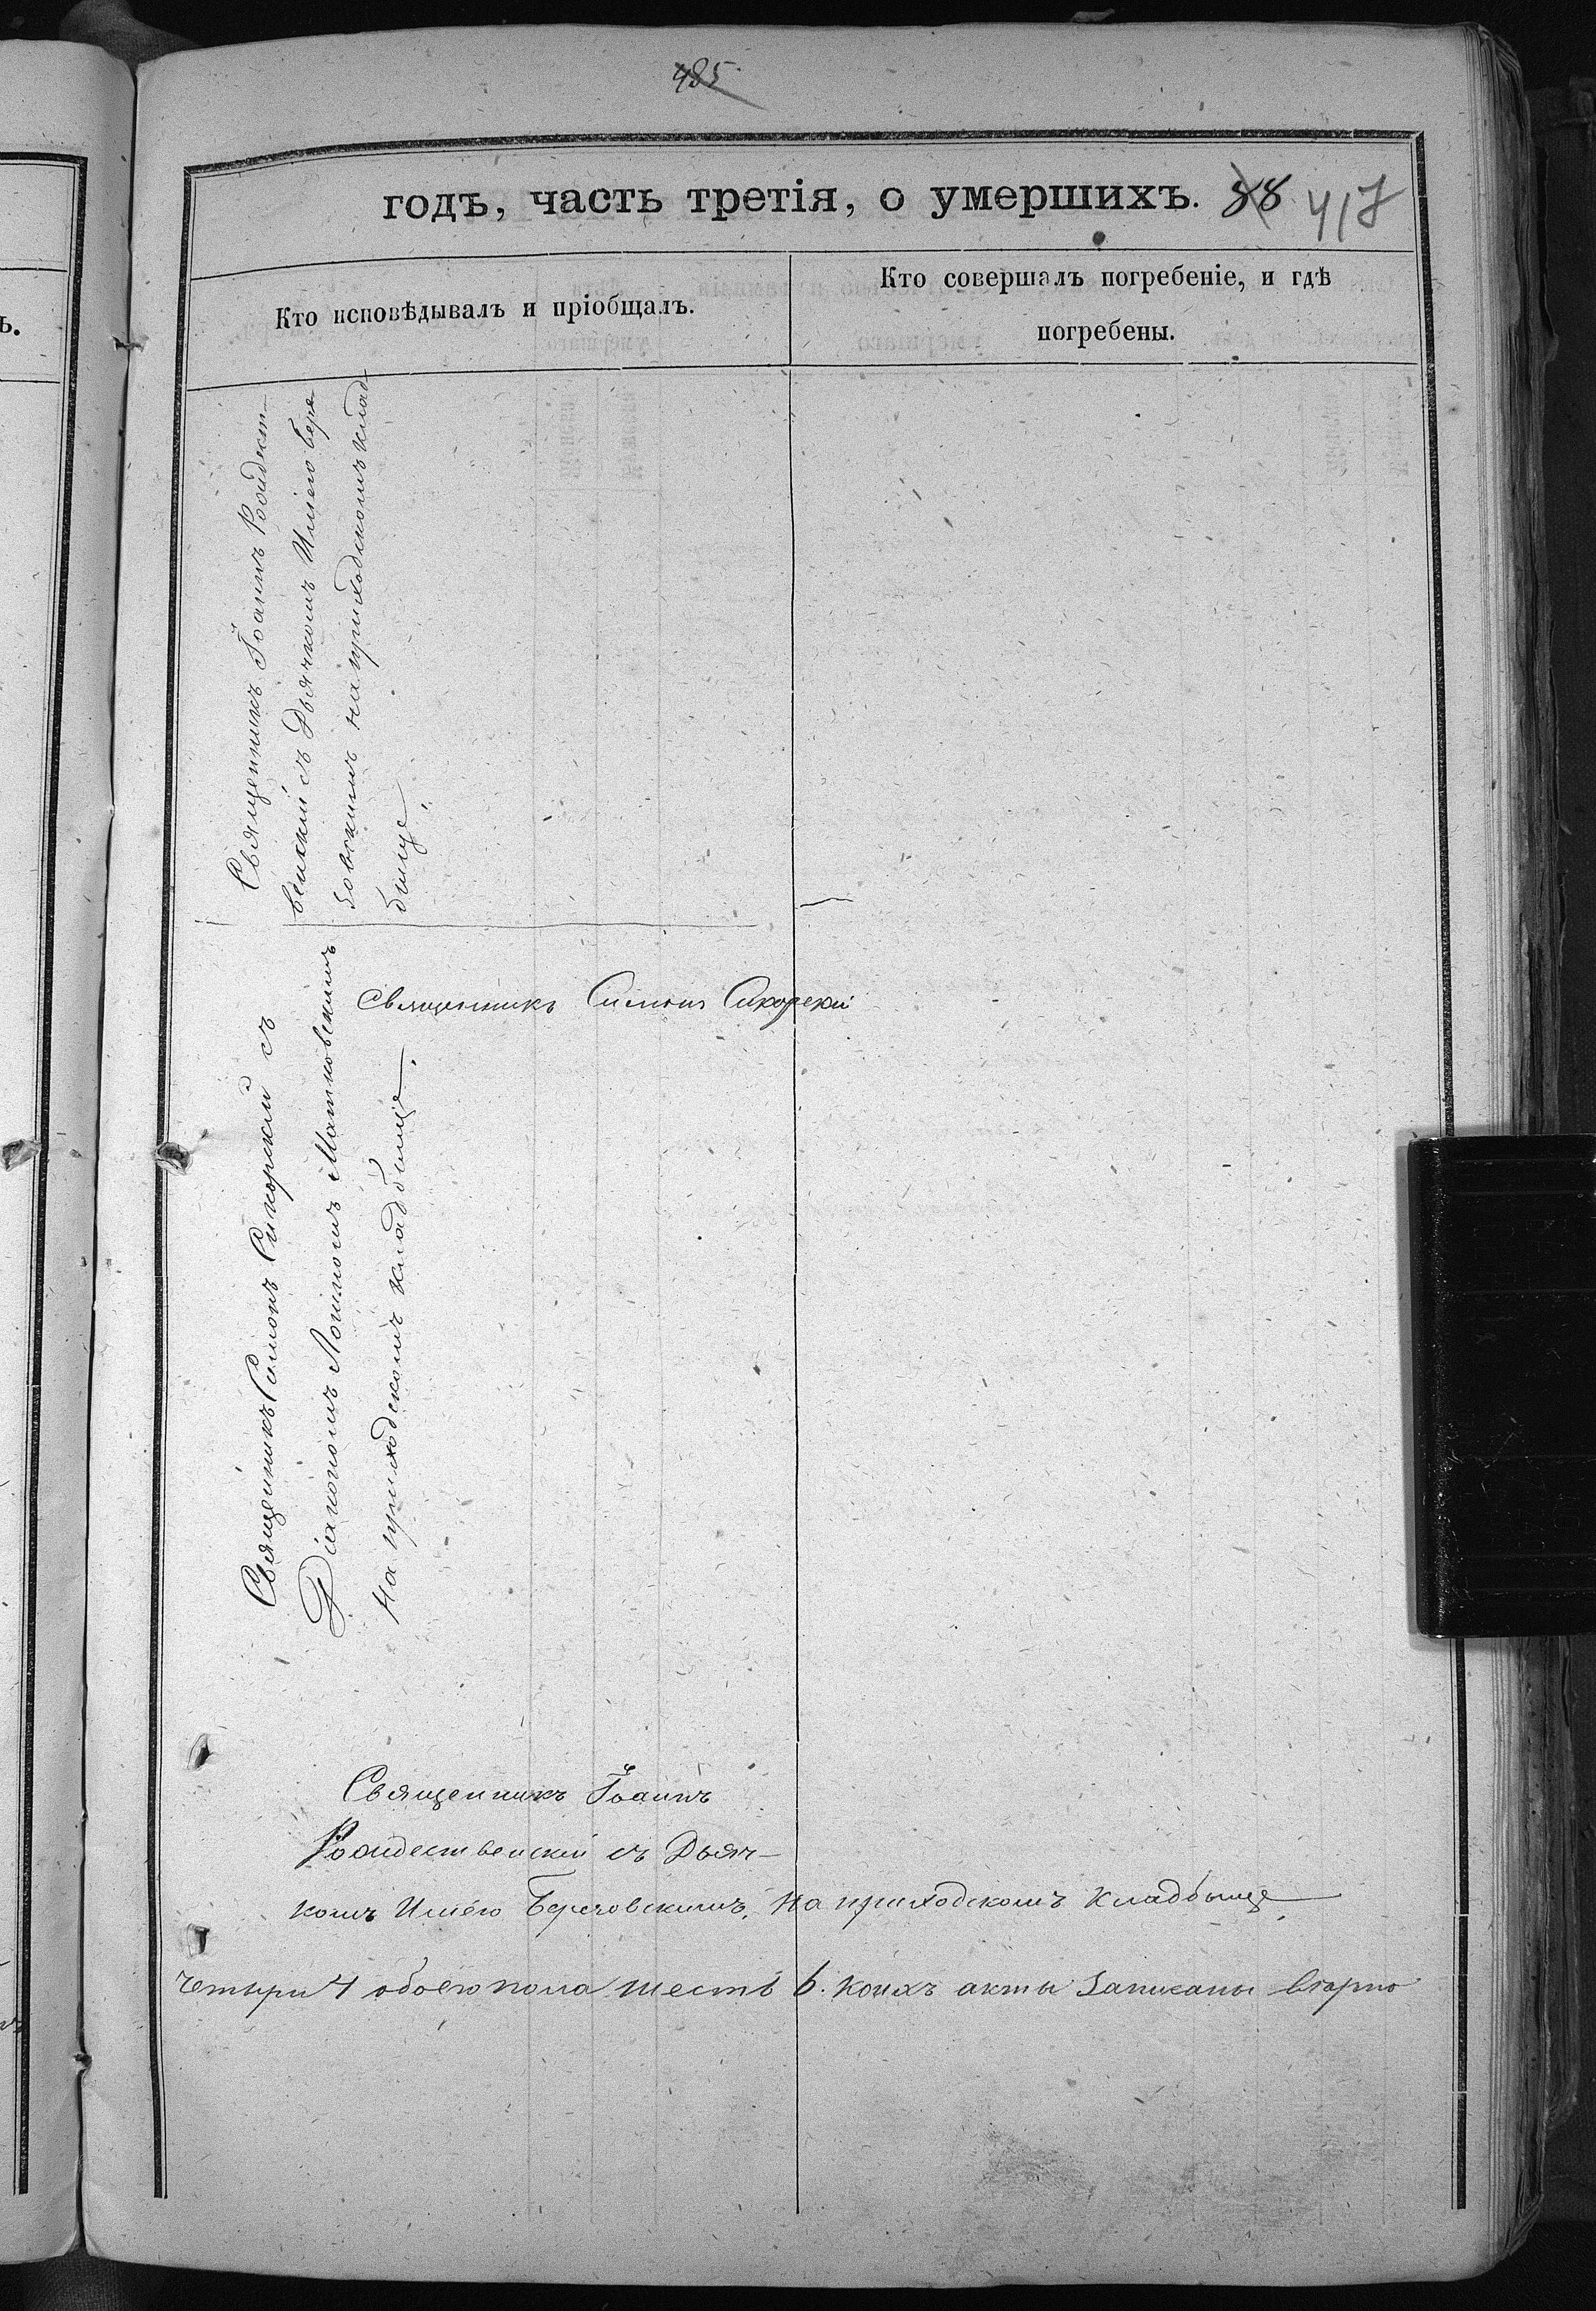 485
годъ, часть третія, о умершихъ. 88 417
Кто исповѣдывалъ и пріобщалъ.
Кто совершалъ погребеніе, и гдѣ
погребены.
Священникъ Іоаннъ Рождест-
венскій съ Дьячкомъ Иліею Бере
зовскимъ на приходскомъ клад
бище
Священникъ Симонъ Сикорскій съ
Діакономъ Матковскимъ
На приходскомъ кладбище.
Священникъ Симонъ Сикорскій
Священникъ Іоаннъ
Рождественскій съ Дьяч-
комъ Иліею Березовскимъ, на приходскомъ кладбыще
четыри 4 обоего пола шесть 6. коихъ акты записаны вѣрно